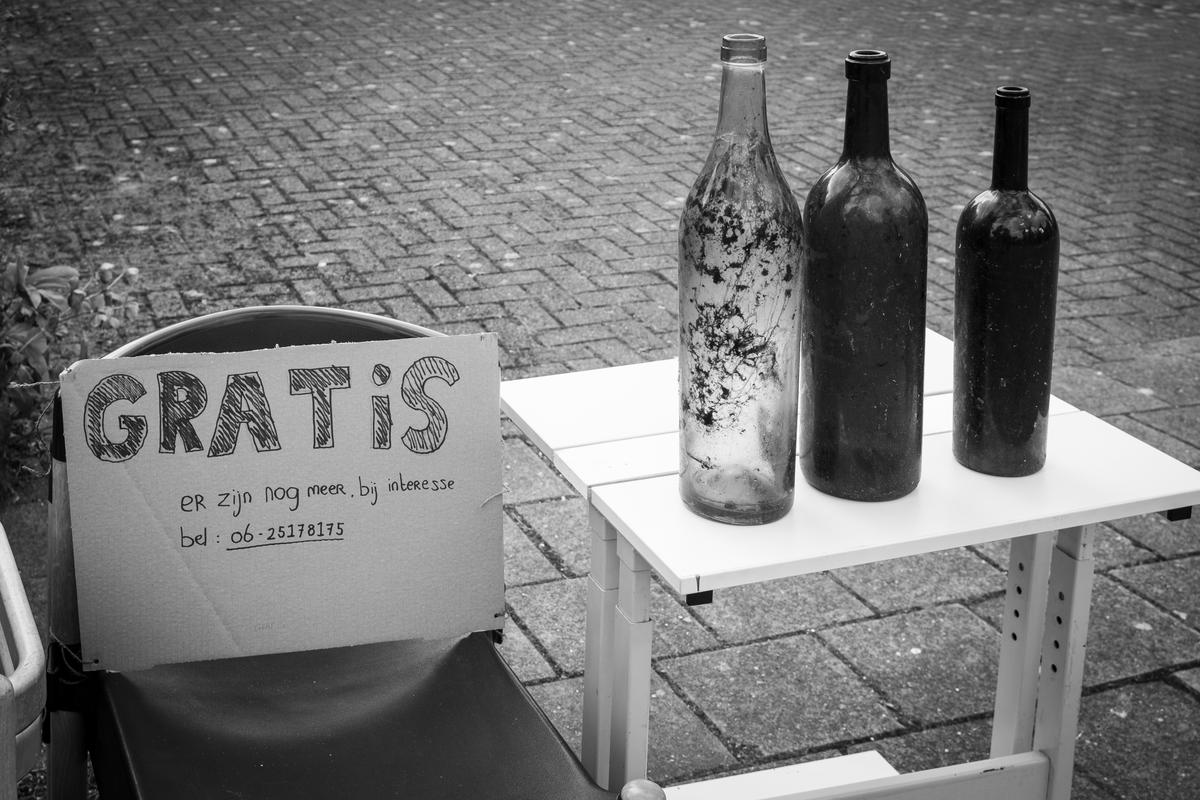 GRATiS
er zijn nog meer, bij interesse
bel : 06-25178175